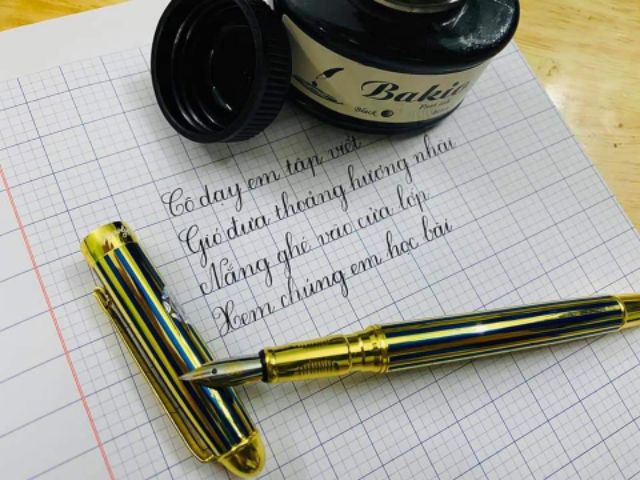 Bakio
Black
Cô dạy em tập viết
Gió đưa thoảng hương nhài
Nắng ghé vào cửa lớp
Xem chúng em học bài